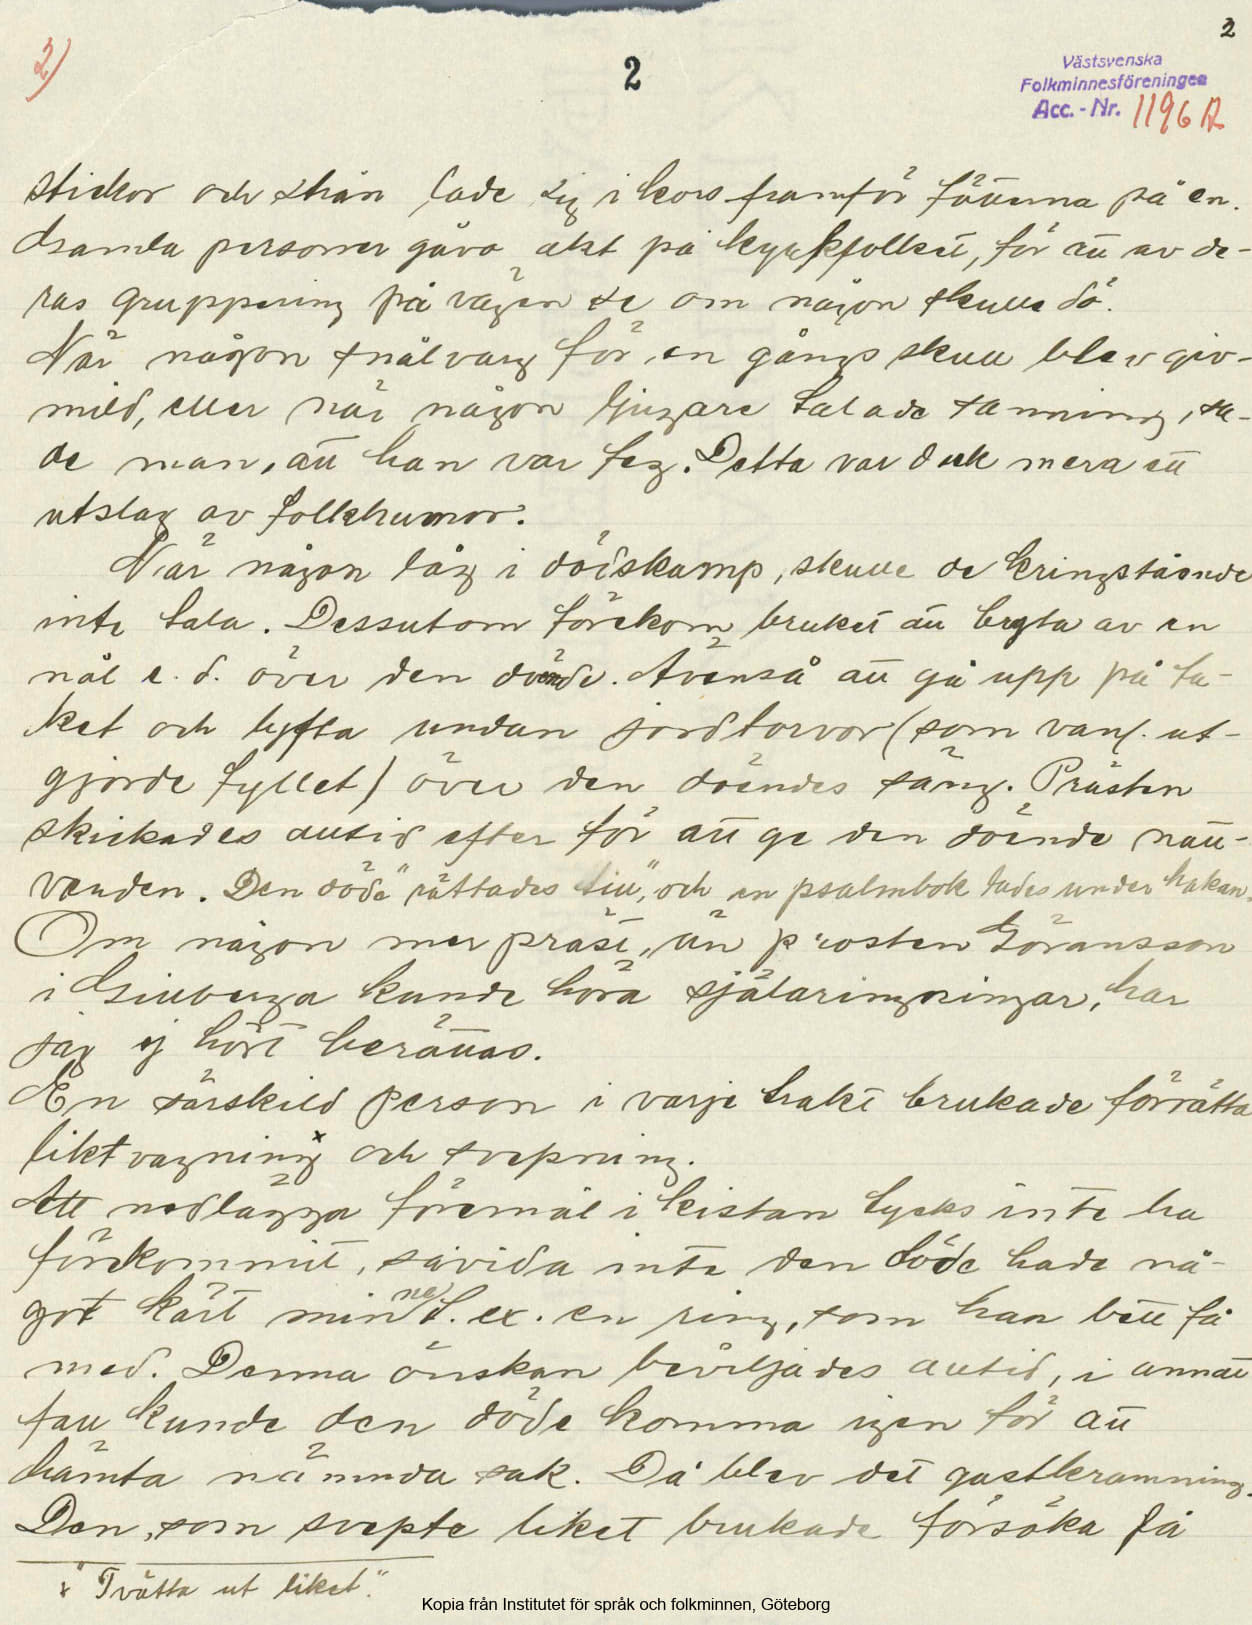 2
2)
2
Västsvenska
Folkminnesföreningen
Acc.-Nr. 1196 R
stickor och strån lade sig i kors framför fötterna på en.
Gamla personer gåvo akt på kyrkfolket, för att av de-
ras gruppering på vägen se om någon skulle dö.
När någon snålvarg för en gångs skull blev giv-
mild, eller när någon ljugare talade sanning, sa-
de man, att han var feg. Detta var dock mera ett
utslag av folkhumor.
När någon låg i dödskamp, skulle de kringstående
inte tala. Dessutom förekom bruket att bryta av en
nål e. d. över den döende. Ävenså att gå upp på ta-
ket och lyfta undan jordtorvor (som vanl. ut-
gjorde fyllet) över den döendes säng. Prästen
skickades alltid efter för att ge den döende natt-
varden. Den döde "rättades till", och en psalmbok lades under hakan.
Om någon mer präst, än prosten Göransson
i Gillberga kunde höra själaringningar, har
jag ej hört berättas.
En särskild person i varje trakt brukade förrätta
liktvagning x och svepning.
Att nedlägga föremål i kistan tycks inte ha
förekommit, såvida inte den döde hade nå-
got kärt minne t. ex. en ring, som han bett få
med. Denna önskan beviljades alltid, i annat
fall kunde den döde komma igen för att
hämta nämnda sak. Då blev det gastkramning.
Den, som svepte liket brukade försöka få
x "Tvätta ut liket".
Kopia från Institutet för språk och folkminnen, Göteborg